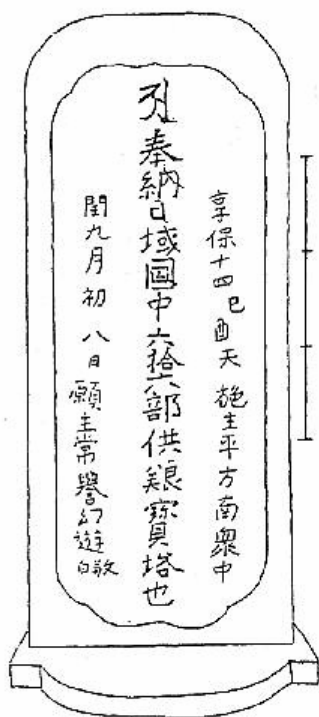 享保十四巳酉天 施主平方南衆中
奉納日域國中六拾六部供養寶塔也
閏九月初八日 願主常譽幻遊敬白